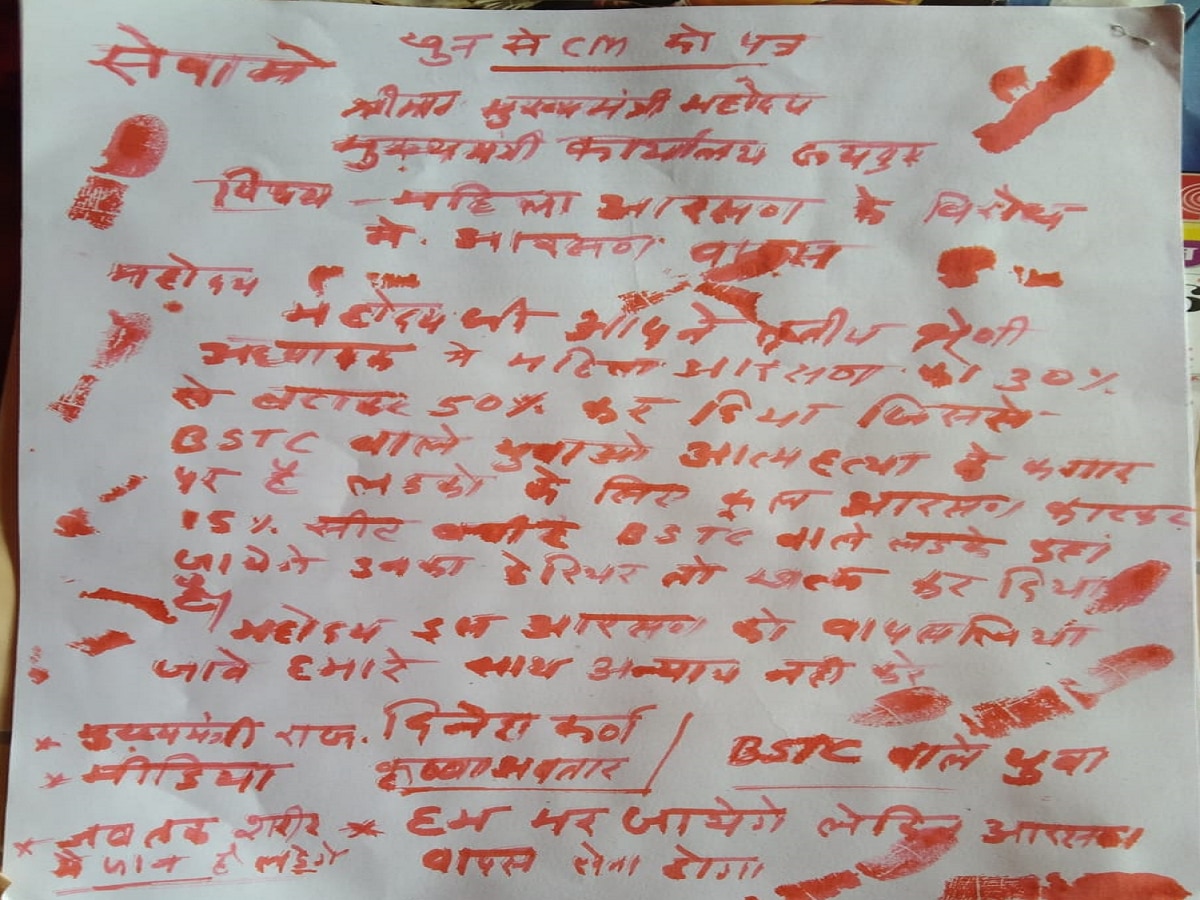 खुन से CM को पत्र
सेवामे
श्रीमान मुख्यमंत्री महोदय
मुख्यमंत्री कार्यालय जयपुर
विषय - महिला आरक्षण के विरोध
मे आरक्षण वापस
महोदय
महोदय जी आपने तृतीय श्रेणी
अध्यापक मे महिला आरक्षण को 30%
से बढाकर 50% कर दिया जिससे
BSTC वाले युवाओ आत्महत्या के कगार
पर है लडको के लिए कुल आरक्षण काटकर
15% सीट BSTC वाले लडके कहा
जायेगे उनका केरियर तो खत्म कर दिया
है।
महोदय इस आरक्षण को वापस लिया
जावे हमारे साथ अन्याय नही करे
* मुख्यमंत्री राज. दिनेश /
* मीडिया कृष्ण अवतार BSTC वाले युवा
* जब तक शरीर * हम मर जायेगे लेकिन आरक्षण
मे जान है लडेगे वापस लेना होगा